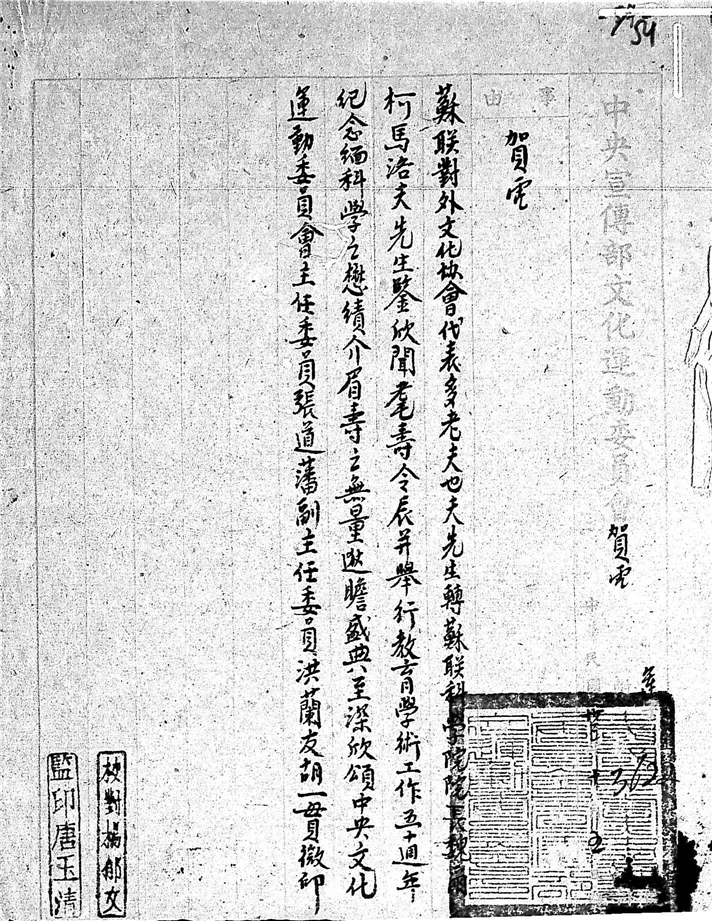 54
中央宣傳部文化運動委員會
賀電
中華民國
事由
賀電
蘇联對外文化協會代表多老夫也夫先生轉蘇联科學院院長魏
柯馬洛夫先生鑒欣聞耄壽令辰并舉行教育學術工作五十週年
紀念緬科學之懋績介眉壽之無量遥瞻盛典至深欣頌中央文化
運動委員會主任委員張道藩副主任委員洪蘭友胡一貫徹印
校對楊郁文
監印唐玉清